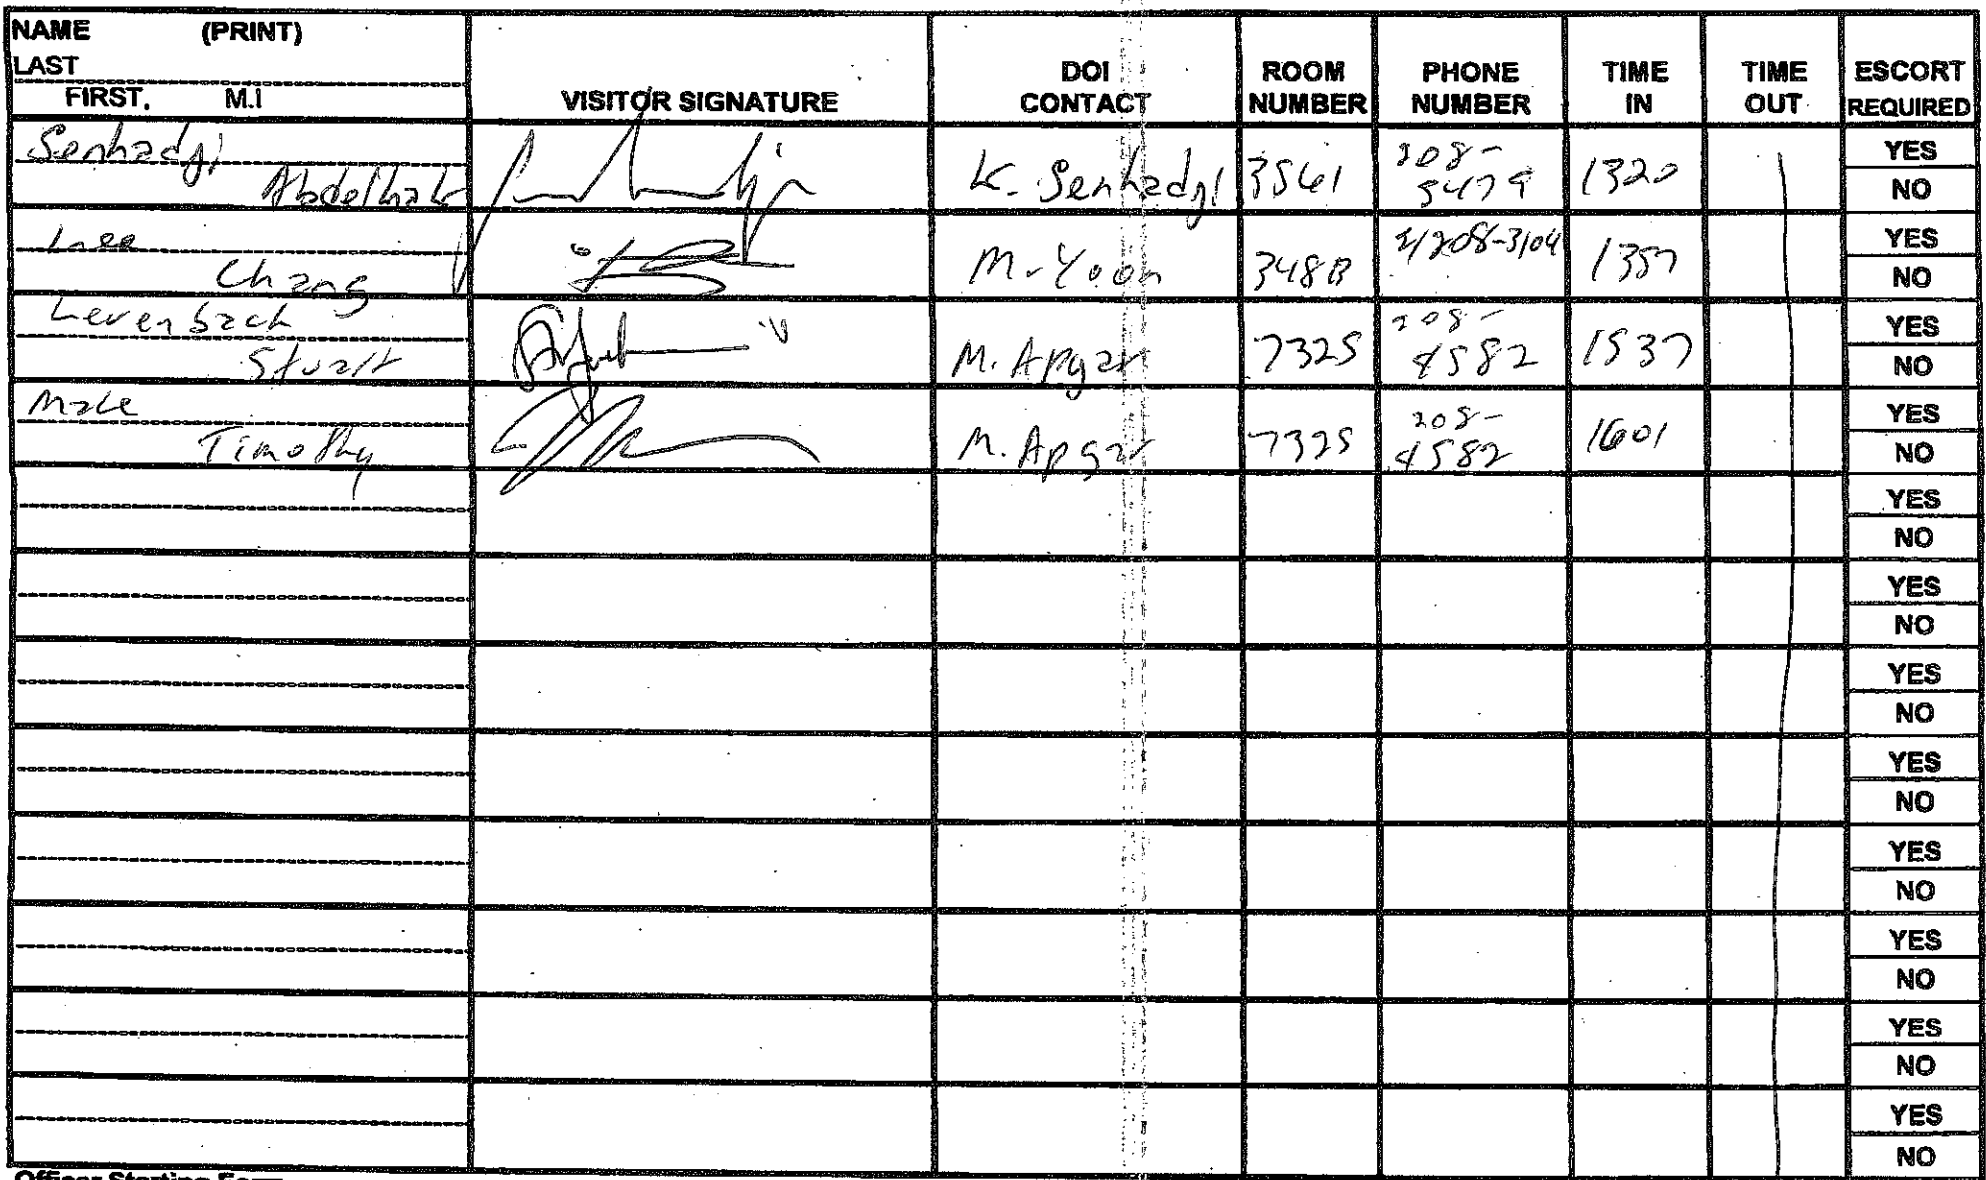 NAME (PRINT)
LAST
FIRST, M.I
VISITOR SIGNATURE
DOI
CONTACT
ROOM
NUMBER
PHONE
NUMBER
TIME
IN
TIME
OUT
ESCORT
REQUIRED
Senhadji
Abdelhak
K. Senhadji
3561
208-
5479
1320
YES
NO
Lee
Chang
M. Yoon
348B
208-3104
1357
YES
NO
Levenbach
Stuart
M. Apgar
7325
208-
4582
1537
YES
NO
Male
Timothy
M. Apgar
7325
208-
4582
1601
YES
NO
YES
NO
YES
NO
YES
NO
YES
NO
YES
NO
YES
NO
YES
NO
YES
NO
Officer Starting Form